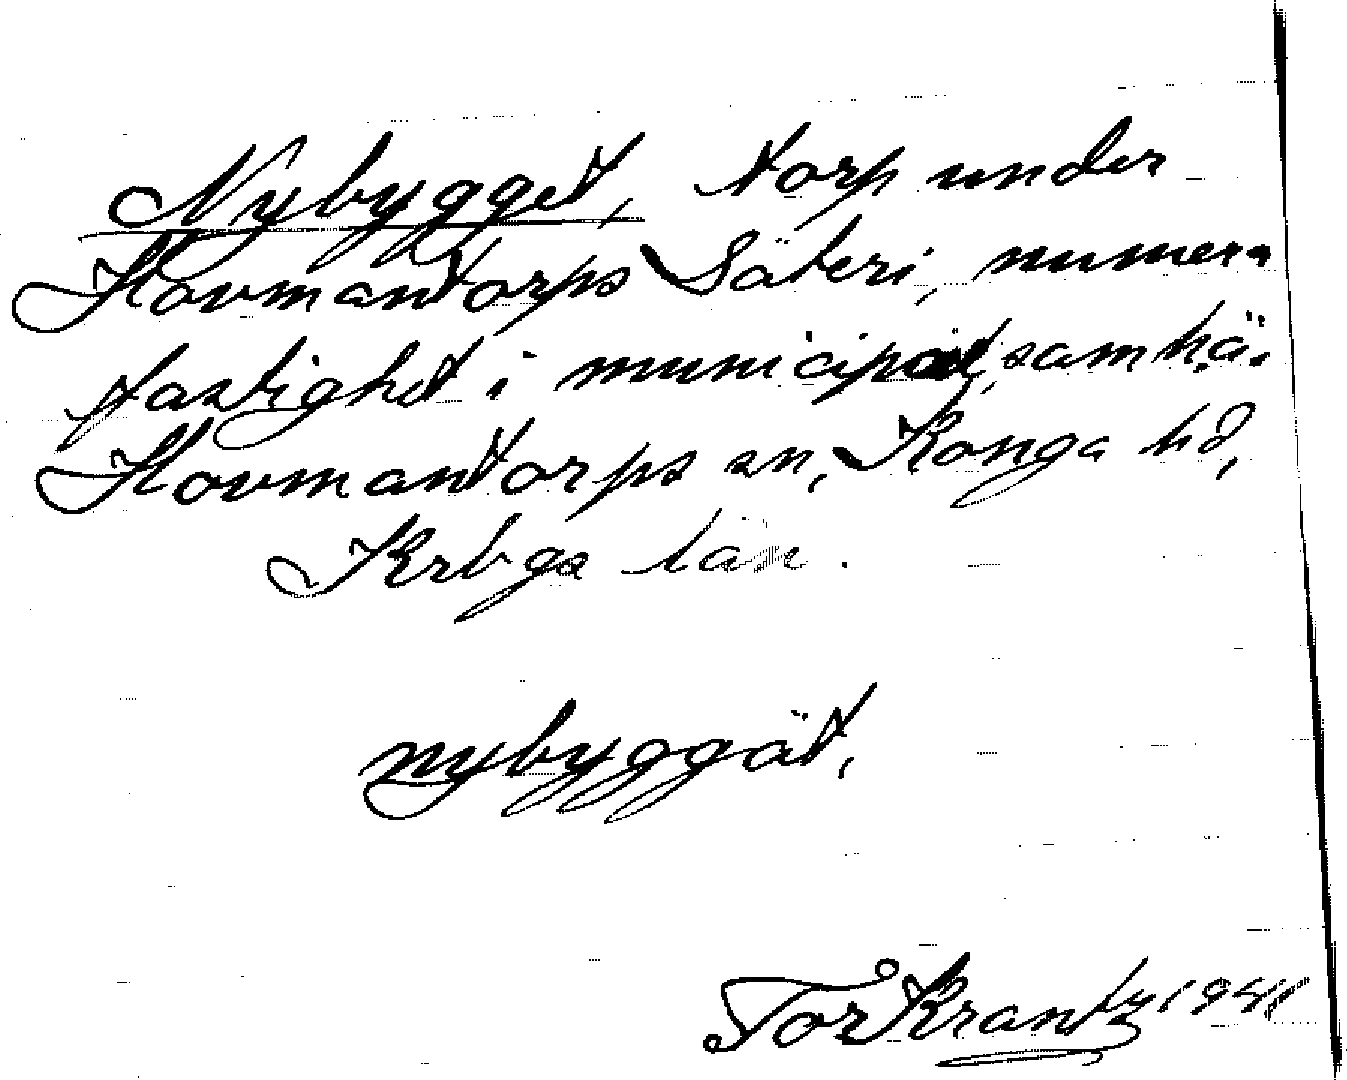 Nybygget, torp under
Hovmantorps Säteri, numera
fastighet i municipalsamhä.
Hovmantorps sn, Konga hd,
Krbgs län.
nybyggät,
Tor Krantz 1941